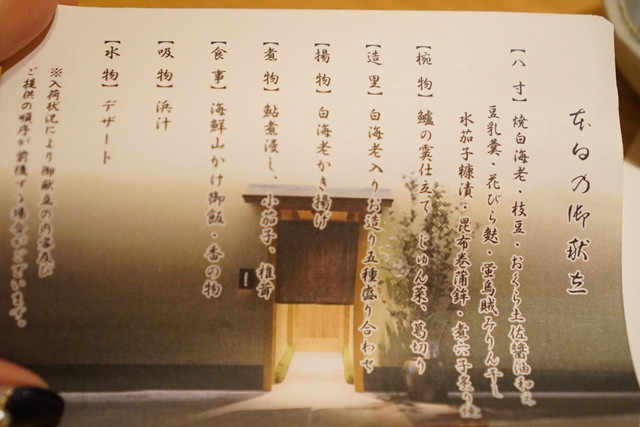 本日の御献立
【八寸】焼白海老・枝豆・おくら土佐醤油和え
豆乳羹・花びら麩・蛍烏賊みりん干し
水茄子糠漬・昆布巻蒲鉾・煮穴子炙り焼
【椀物】鱸の霙仕立て じゅん菜、葛切り
【造里】白海老入りお造り五種盛り合わせ
【揚物】白海老かき揚げ
【煮物】鮎煮浸し、小茄子、椎茸
【食事】海鮮山かけ御飯・香の物
【吸物】浜汁
【水物】デザート
※入荷状況により御献立の内容及び
ご提供の順序が前後する場合がございます。